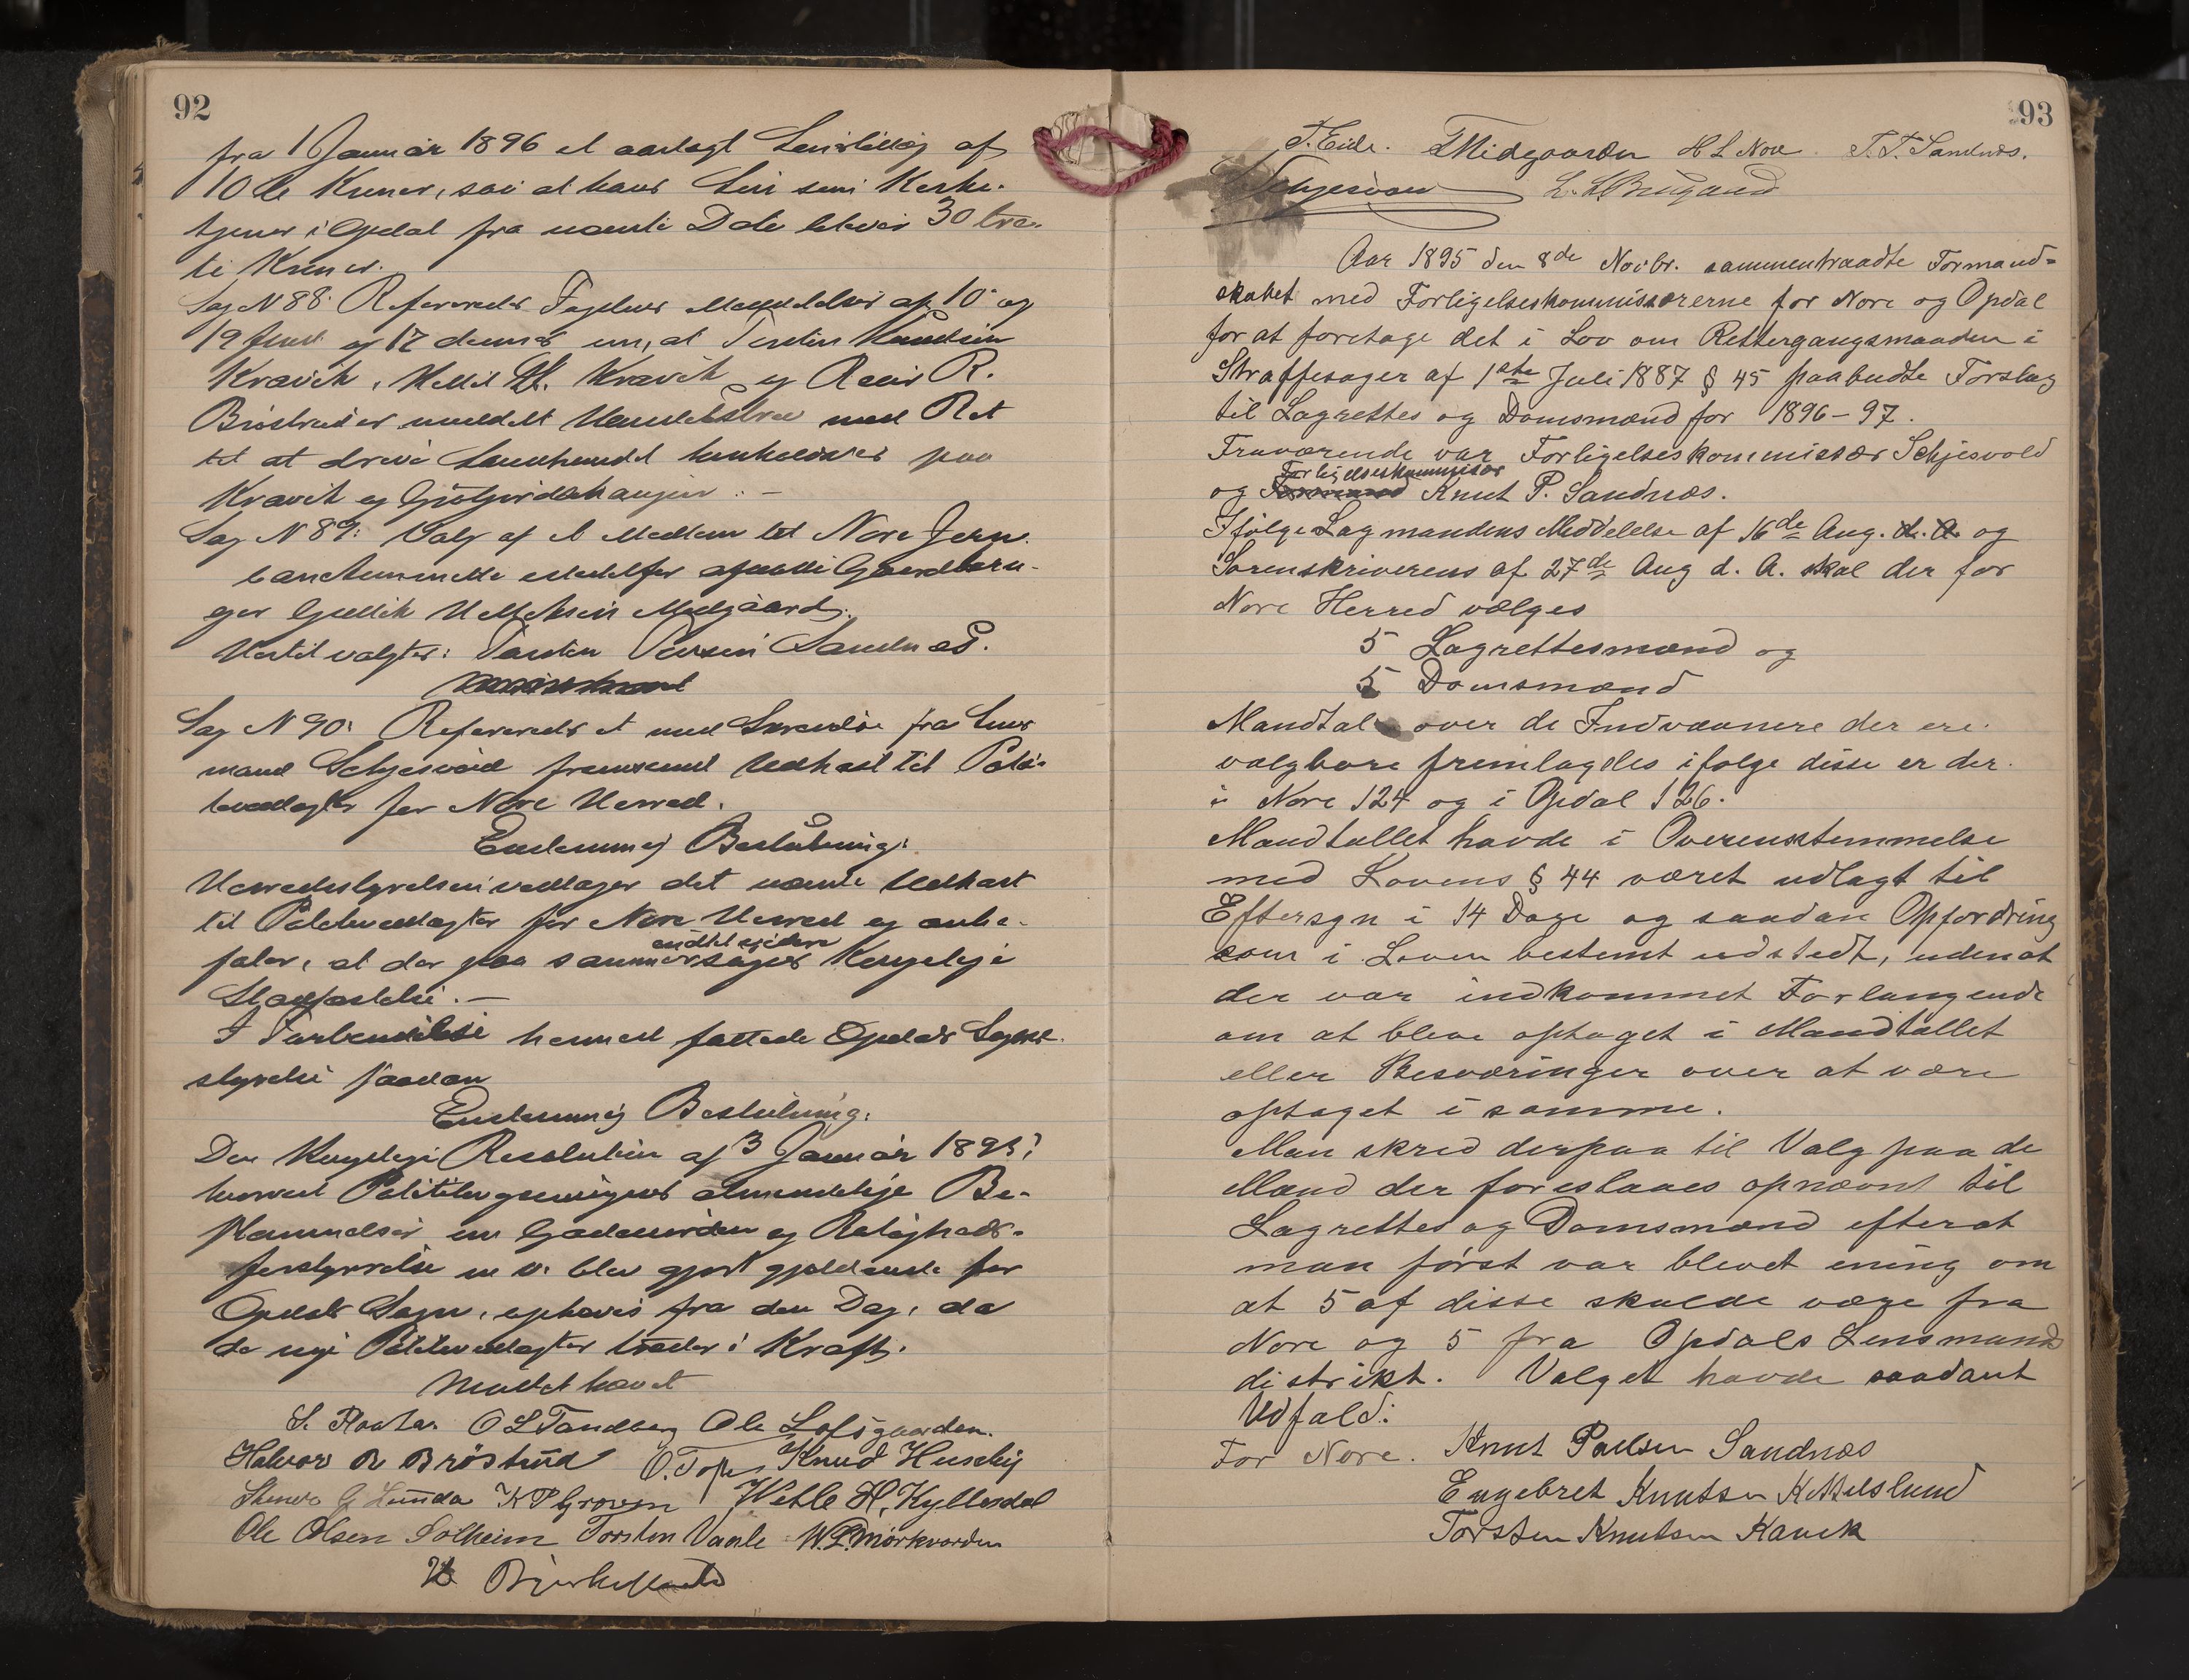 92
fra 1 Januar 1896 et aarlagt Lønstillæg af
10 ti Kroner, saa at hans Løn som Kirke-
tjener i Opdal fra nævnte Dato bliver 30 tre-
ti Kroner.
Sag N 88: Refereredes Fogdens Meddelelser af 10de og
19 og 17 dennes om, at Torsten Knudsen
Kravik, Kittil Kravik og R.
Brøstrud er meddelt Handelsbrev med Ret
til at drive Landhandel henholdsvis paa
Kravik og
Sag N 89: Valg af et Medlem til Nore Jern-
banekommitte istedetfor afdøde Gaardbru-
ger Gullik Midgaard.
Hertil valgtes: Torsten Sandnæs.
Sag N 90: Refereredes et med Skrivelse fra Lens
mand Schjesvold fremsendt Udkast til Politi-
vedtægter for Nore Herred.
Enstemmig Beslutning:
Herredsstyrelsen vedtager det nævnte Udkast
til Politivedtægter for Nore Herred og anbe-
faler, at der paa samme Kongelig
Stadfæstelse. —
I Forbindelse hermed fattede Opdals Sogne-
styrelse saadan
Enstemmig Beslutning:
Den Kongelige Resolution af 3 Januar
hvorved Politilovgivningens almindelige Be-
stemmelser om Gadeuorden og Roligheds-
forstyrrelse m v. blev gjort gjeldende for
Opdals Sogn, ophæves fra den Dag, da
de nye Politivedtægter træder i Kraft.
Mødet hævet
O L Tandberg Ole Løfsgaarden.
Halvor O Brøstrud O. Knud Huseby
G Lunda K P Groven Vetle H. Kyllesdal
Ole Olsen Solheim Torsten Vaale W. L. Mørkvorden
93
T. Eide. T Midgaarden H L Nore T. T. Sandnæs.
Schjesvold
Aar 1895 den 8de Novbr. sammentraadte Formand=
skabet med Forligelseskommissærerne for Nore og Opdal
for at foretage det i Lov om Rettergangsmaaden i
Straffesager af 1ste Juli 1887 § 45 paabudte Forslag
til Lagrettes og Domsmænd for 1896 – 97.
Fraværende var Forligelseskommissær Schjesvold
og Forligelseskommissær Knut P. Sandnæs.
Ifølge Lagmandens Meddelelse af 16de Aug. d. A. og
Sorenskriverens af 27de Aug d. A. skal der for
Nore Herred vælges
5 Lagrettesmænd og
5 Domsmænd
Mandtal over de Indvaanere der ere
valgbare fremlagdes ifølge disse er der
i Nore 124 og i Opdal 126.
Mandtallet havde i Overensstemmelse
med Lovens § 44 været udlagt til
Eftersyn i 14 Dage og saadan Opfordring
som i Loven bestemt udstedt, uden at
der var indkommet Forlangende
om at blive optaget i Mandtallet
eller Besværinger over at være
optaget i samme.
Man skred derpaa til Valg paa de
Mænd der foreslaaes opnævnt til
Lagrettes og Domsmænd efterat
man først var blevet enig om
at 5 af disse skulde være fra
Nore og 5 fra Opdals Lensmands
distrikt. Valget havde saadant
Udfald:
For Nore. Knut Paulsen Sandnæs
Engebret Knutsen Kittilslund
Torsten Knutsen Kravik